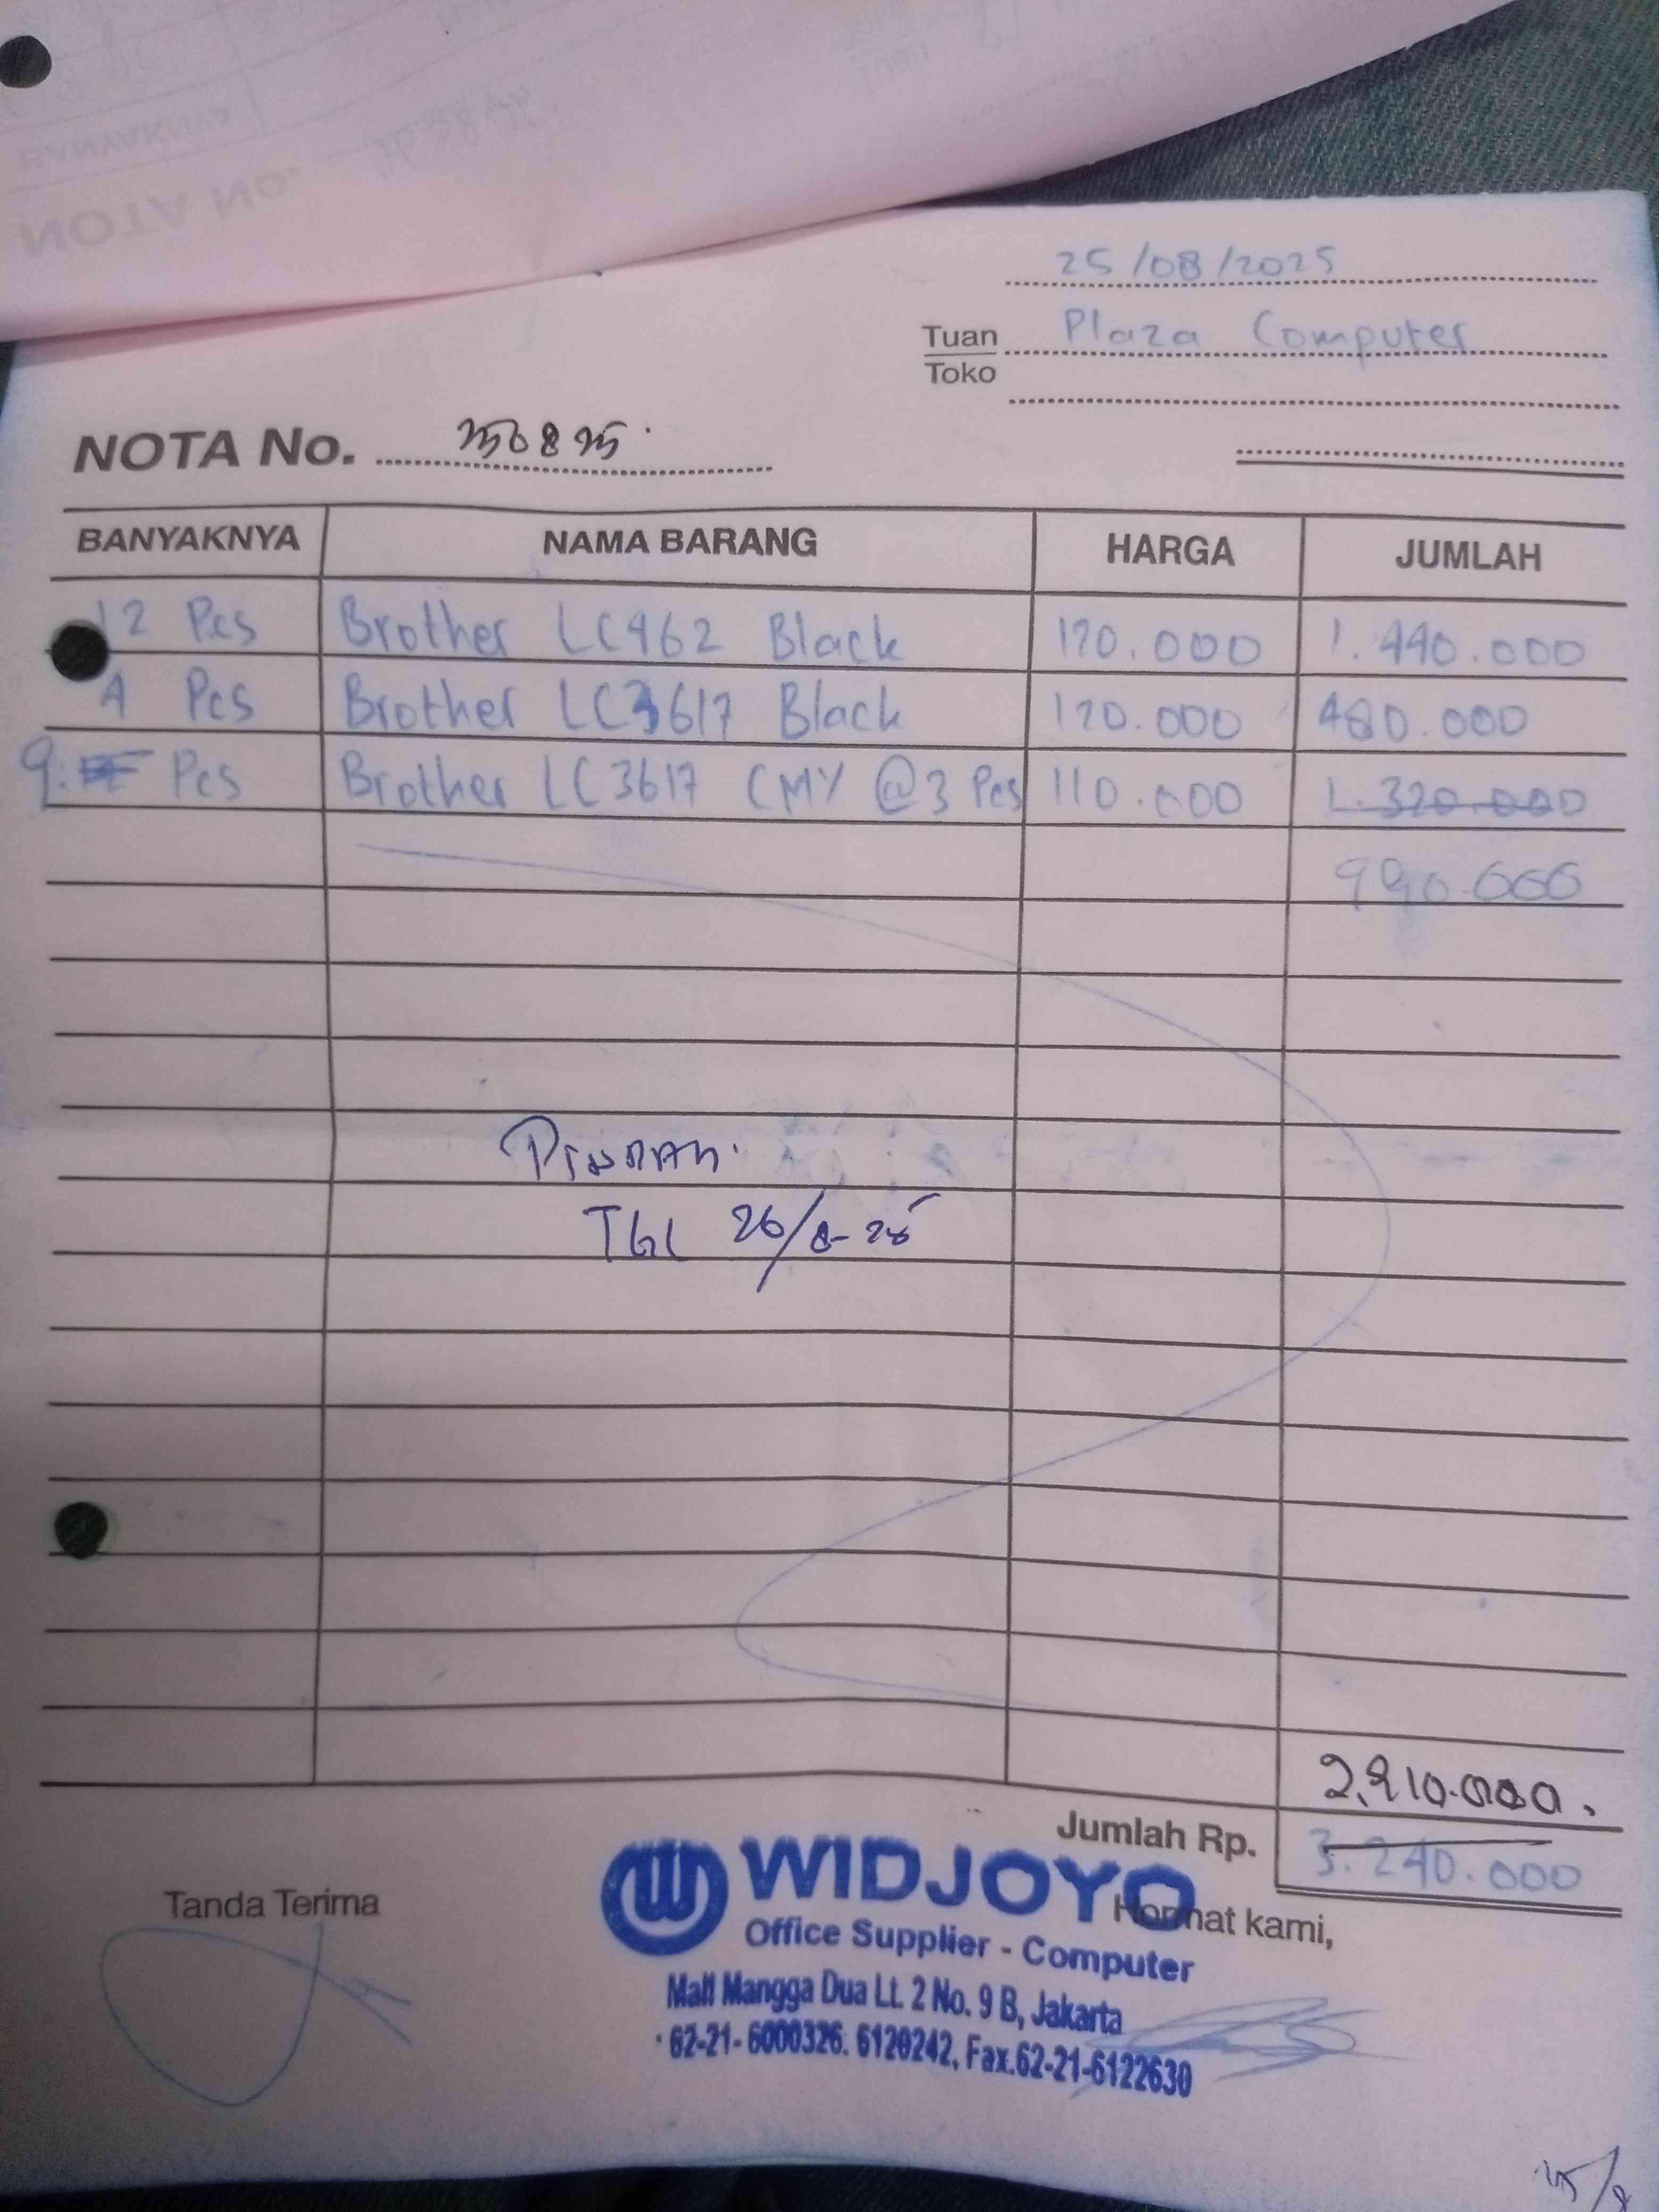 NOTA No.
BANYAKNYA
25/08/2025
Tuan Plaza Computer
Toko
NOTA No. 250825
BANYAKNYA NAMA BARANG HARGA JUMLAH
12 Pcs Brother LC462 Black 120.000 1.440.000
4 Pcs Brother LC3617 Black 120.000 480.000
9. Pcs Brother LC3617 CMY @3 Pcs 110.000 1.320.000
990.000
TGL 26/8-25
2.910.000.
Jumlah Rp. 3.240.000
Tanda Terima
Hormat kami,
WIDJOYO
Office Supplier - Computer
Mall Mangga Dua Lt. 2 No. 9 B, Jakarta
62-21-6000326. 6120242, Fax.62-21-6122630
25/8